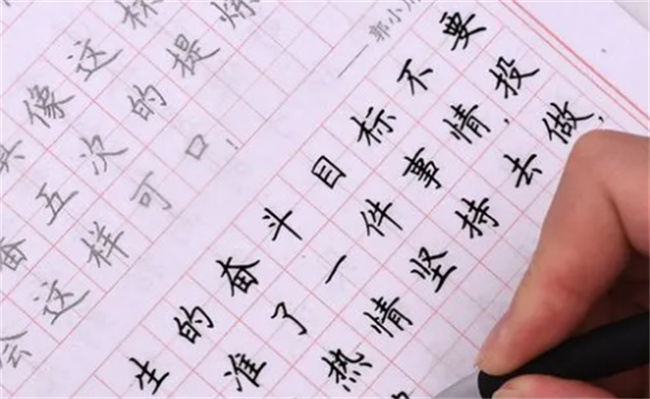 像这
五次的提炼
会这样可口!
——郭小川
生的奋斗目标不要
准了一件事情,投
热情坚持去做,